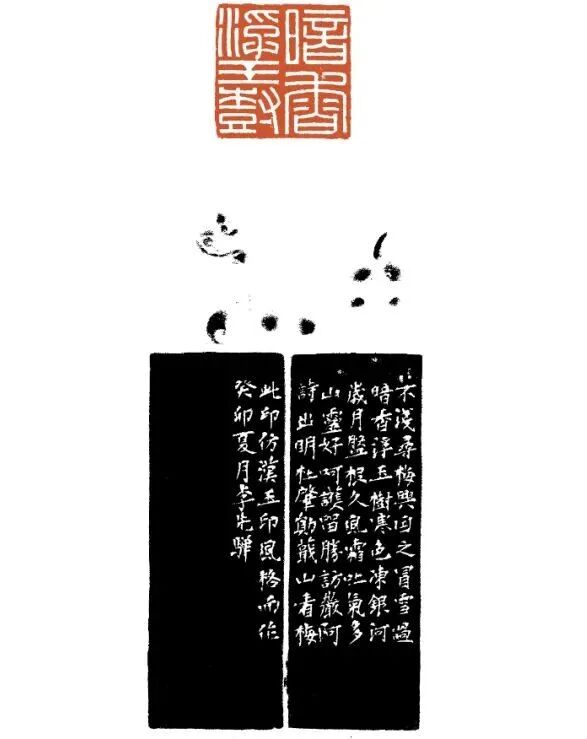 暗香
浮玉樹
不淺尋梅興因之冒雪過
暗香浮玉樹寒色凍銀河
歲月盤根久風霜吐氣多
山靈好呵護留勝訪巖阿
詩出明杜肇勳蕺山看梅
此印仿漢玉印風格而作
癸卯夏月李先驊